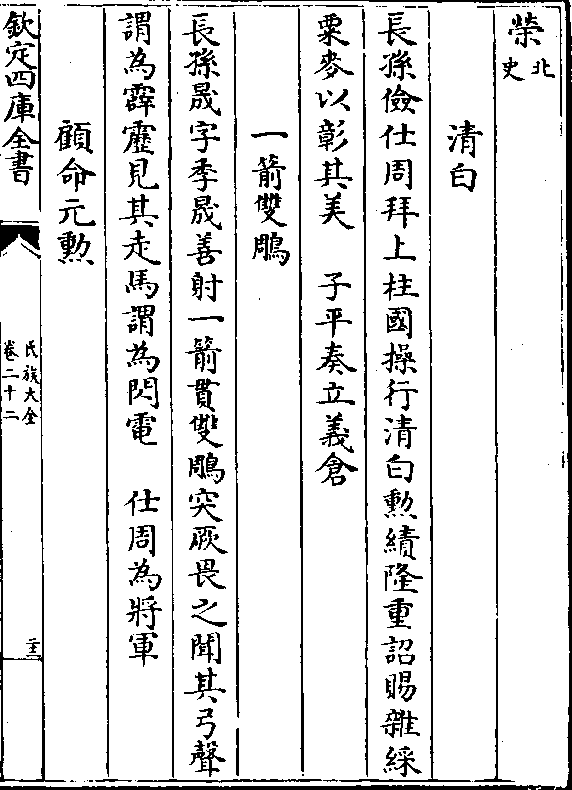 榮北史
清白
長孫儉仕周拜上柱國操行清白勲績隆重詔賜雜綵
粟麥以彰其美　子平奏立義倉
一箭雙鵰
長孫晟字季晟善射一箭貫雙鵰突厥畏之聞其弓聲
謂為霹靂見其走馬謂為閃電　仕周為將軍
顧命元勲
欽定四庫全書
氏族大全
卷二十二
二十三